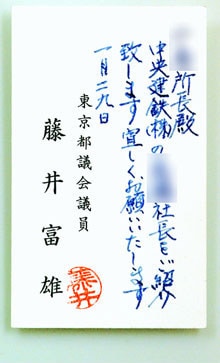 所長殿
中央建鉄(株)の
社長をご紹介
致します宜しくお願いいたします
一月二九日
東京都議会議員
藤井富雄
藤井